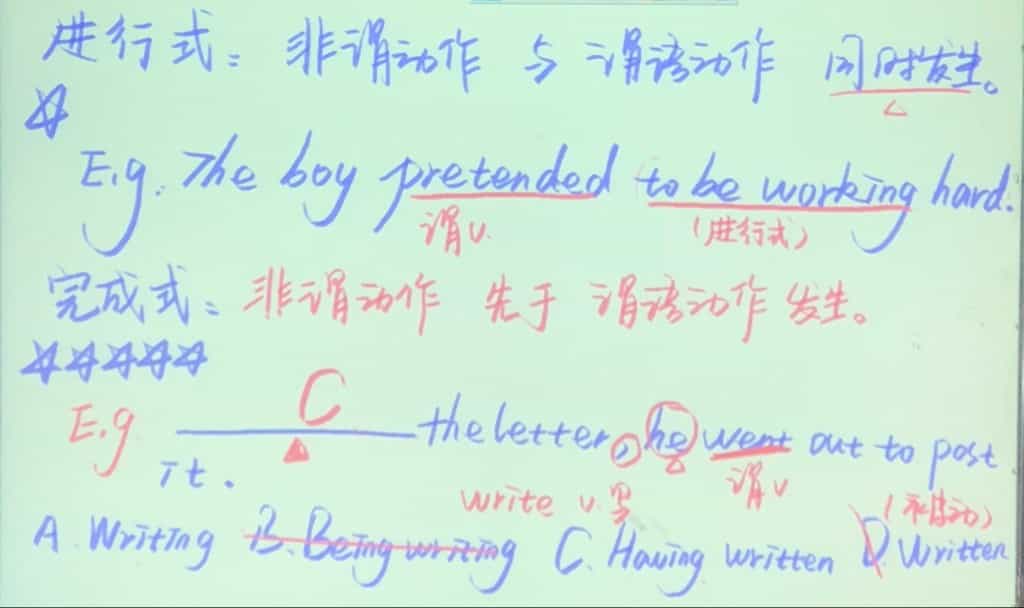 进行式：非谓动作 与 谓语动作 同时发生。
E.g. The boy pretended to be working hard.
谓v. （进行式）
完成式：非谓动作 先于 谓语动作 发生。
E.g ______ the letter, he went out to post
C
谓v
it.
write v.写 （表被动）
A. Writing B. Being writing C. Having written D. Written